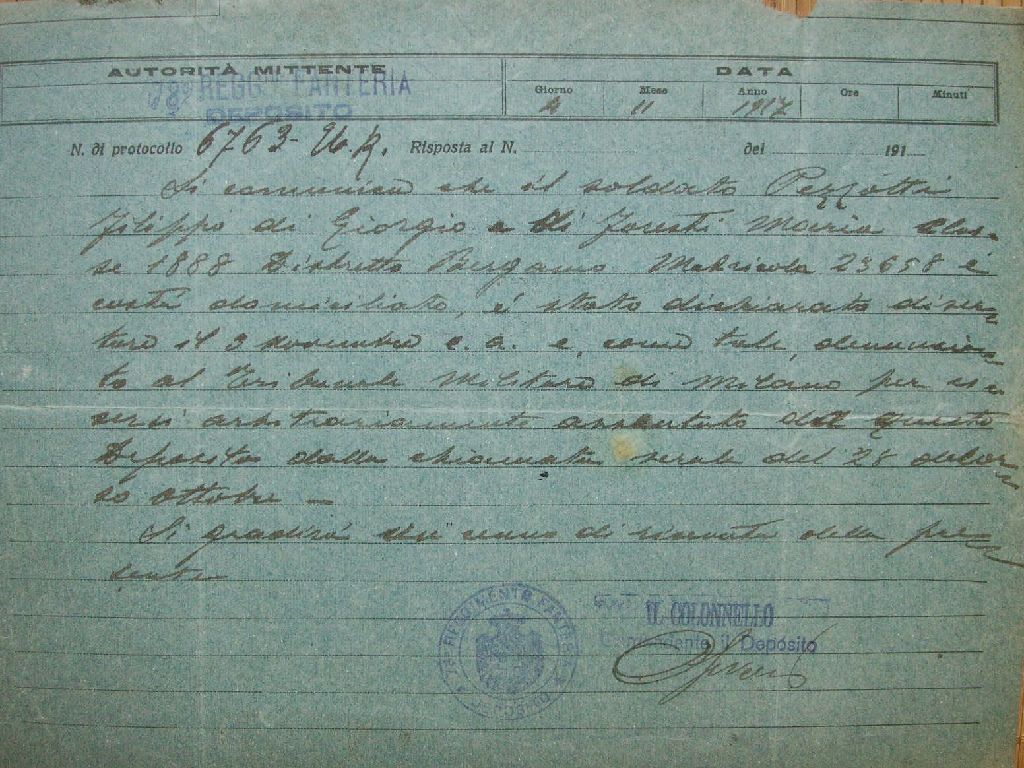 AUTORITÀ MITTENTE
DATA
78º REGG. FANTERIA
DEPOSITO
Giorno Mese Anno Ore Minuti
4 11 1917
N. di protocollo 6763- U.R. Risposta al N. del 191
Si comunica che il soldato Pezzotti
Filippo di Giorgio e di Foresti Maria Clas-
se 1888 Distretto Bergamo Matricola 23658 e
costà domiciliato, è stato dichiarato diser-
tore il 3 novembre c.a. e, come tale, denunzia-
to al Tribunale Militare di Milano per es-
sersi arbitrariamente assentato da questo
Deposito dalla chiamata serale del 28 decor-
so ottobre -
Si gradirà un cenno di ricevuta della pre-
sente
78º REGGIMENTO FANTERIA
DEPOSITO
IL COLONNELLO
Comandante il Deposito